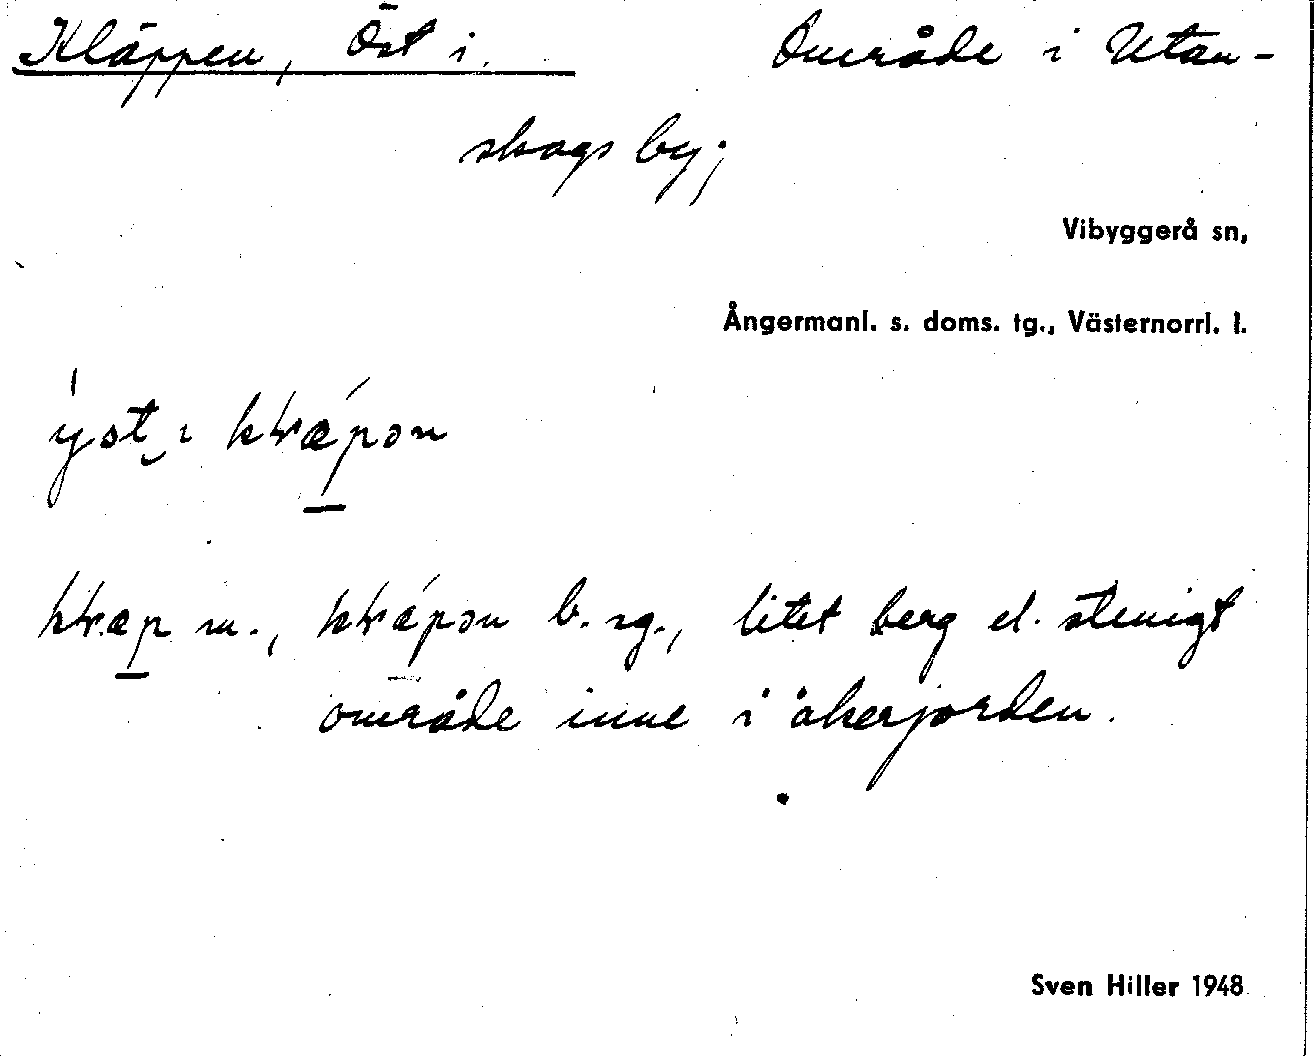 Kläppen, Öst i. Område i Utan-
skogs by;
Vibyggerå sn,
Ångermanl. s. doms. tg., Västernorrl. l.
m., b. sg., litet berg el. stenigt
område inne i åkerjorden.
Sven Hiller 1948